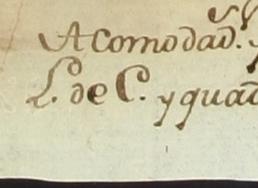 Acomodad.
L. de C. y quad